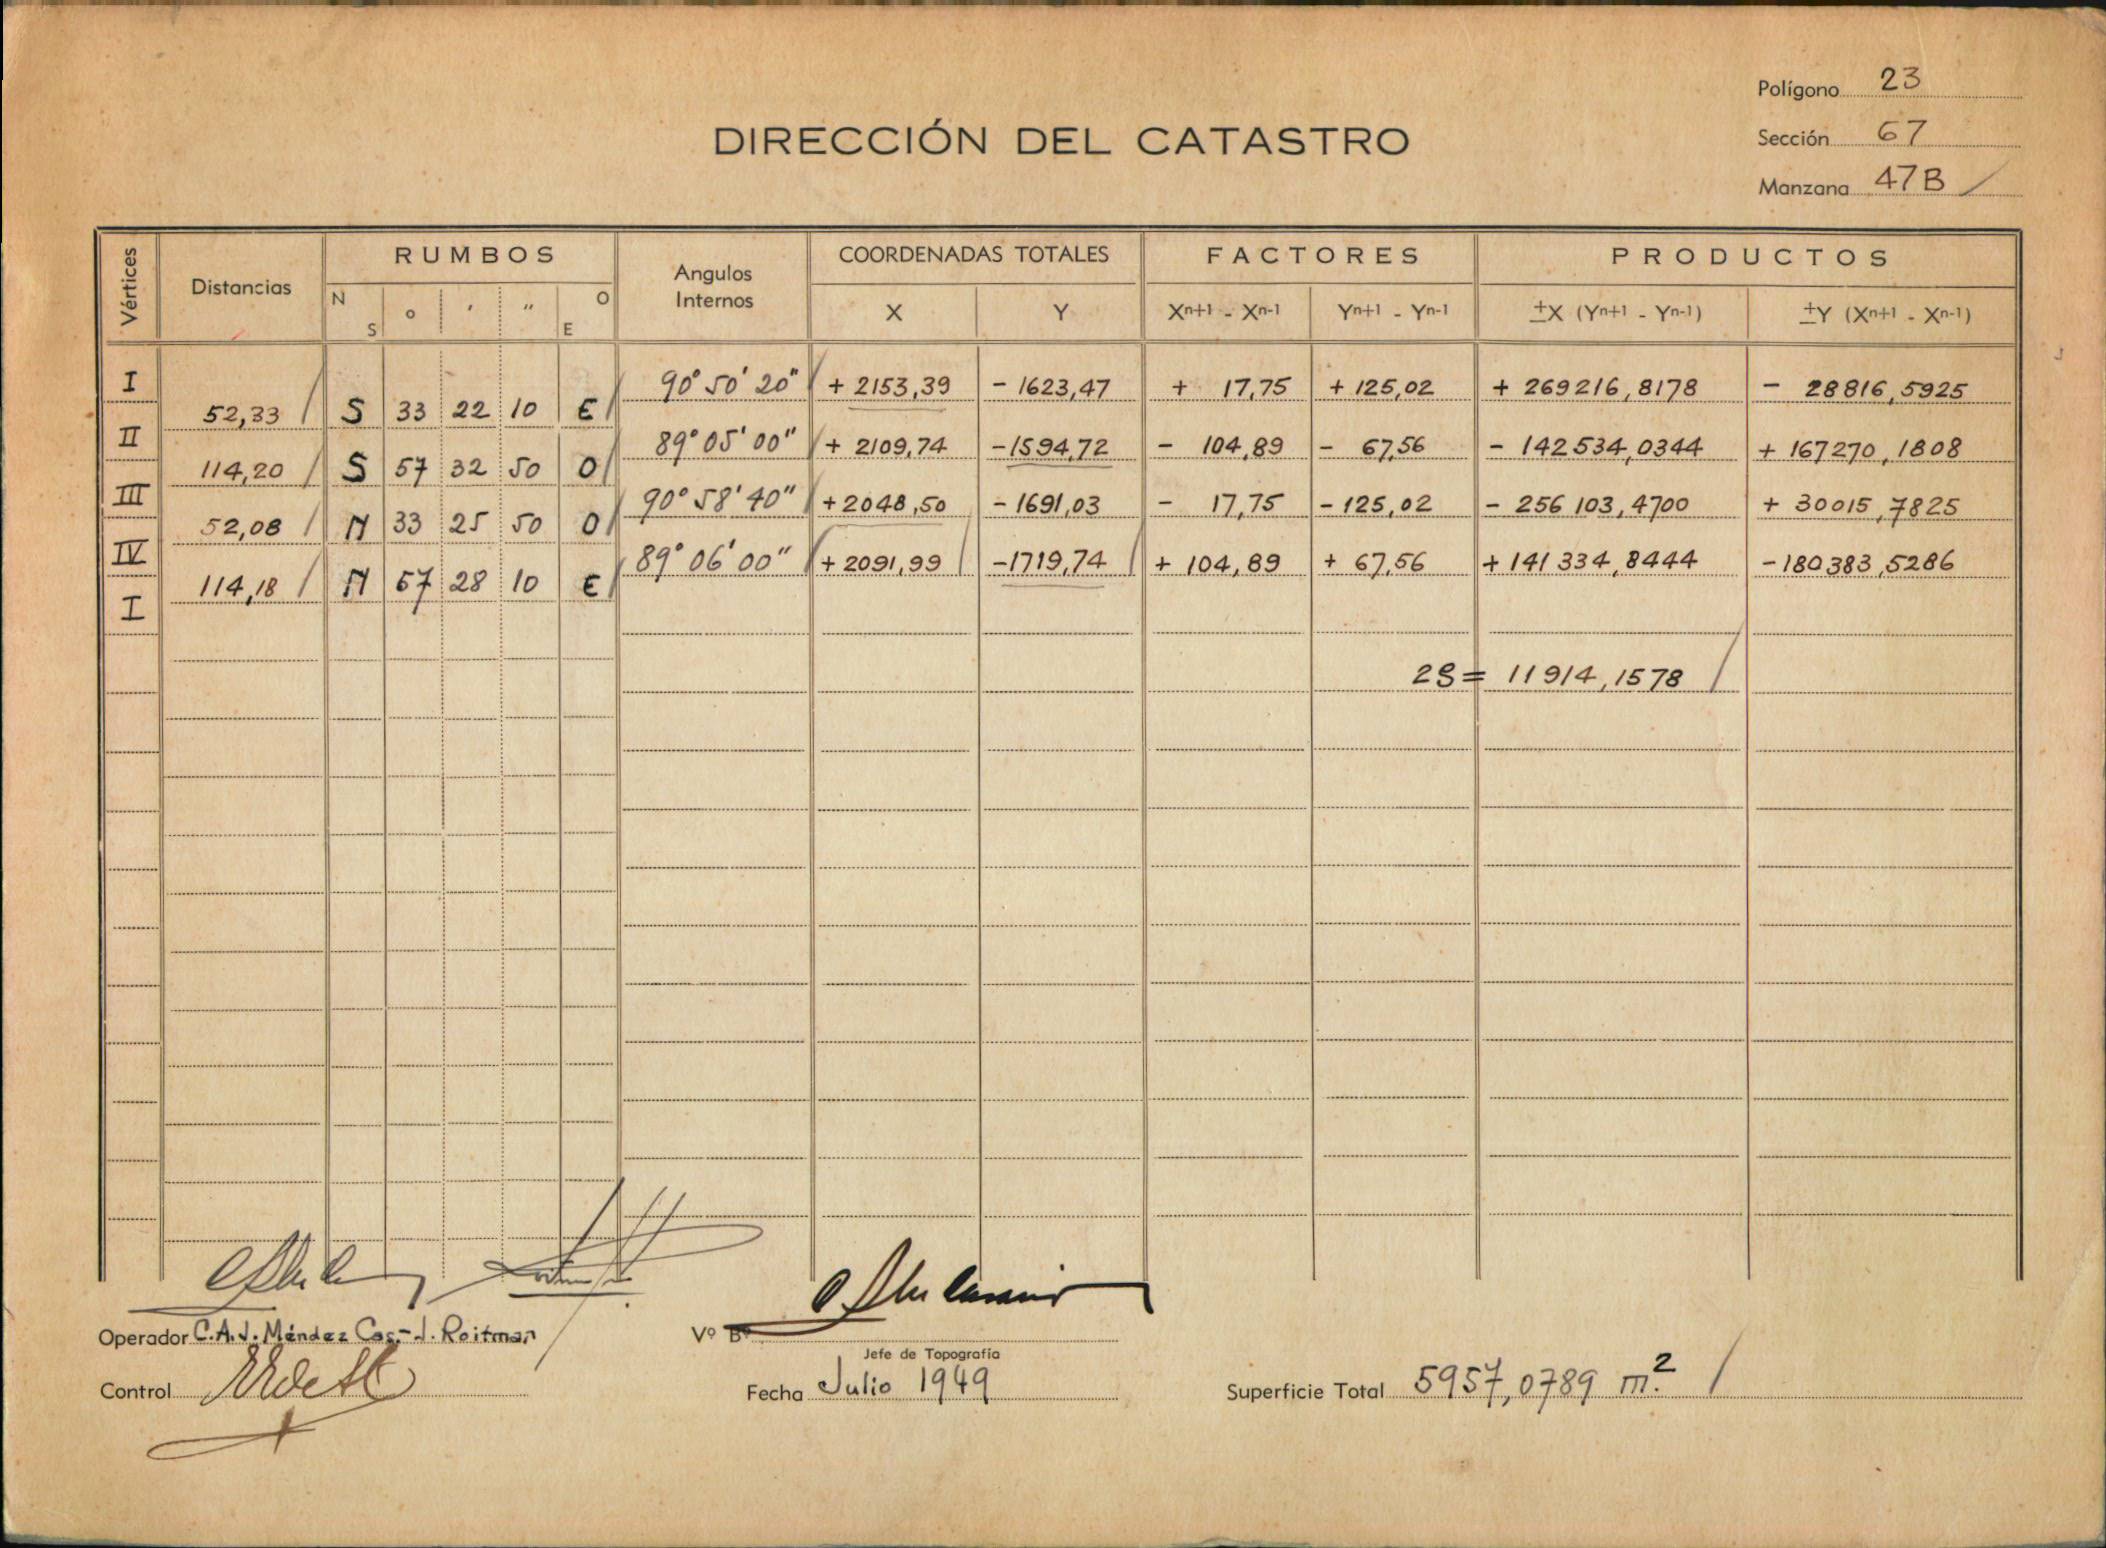 Polígono 23
DIRECCIÓN DEL CATASTRO
Sección 67
Manzana 47B
Vértices Distancias RUMBOS Angulos Internos COORDENADAS TOTALES FACTORES PRODUCTOS
N S ° ' " O E X Y Xⁿ⁺¹ - Xⁿ⁻¹ Yⁿ⁺¹ - Yⁿ⁻¹ ±X (Yⁿ⁺¹ - Yⁿ⁻¹) ±Y (Xⁿ⁺¹ - Xⁿ⁻¹)
I 90° 50' 20" + 2153,39 - 1623,47 + 17,75 + 125,02 + 269216,8178 - 28816,5925
52,33 S 33 22 10 E
II 89° 05' 00" + 2109,74 -1594,72 - 104,89 - 67,56 - 142534,0344 + 167270,1808
114,20 S 57 32 50 O
III 90° 58' 40" +2048,50 - 1691,03 - 17,75 -125,02 - 256103,4700 + 30015,7825
52,08 N 33 25 50 O
IV 89° 06' 00" +2091,99 -1719,74 + 104,89 + 67,56 +141334,8444 -180383,5286
114,18 N 57 28 10 E
I
2S= 11914,1578
Operador C.A.J. Méndez Cas.-J. Roitman
Vº Bº
Jefe de Topografía
Control
Fecha Julio 1949
Superficie Total 5957,0789 m.²